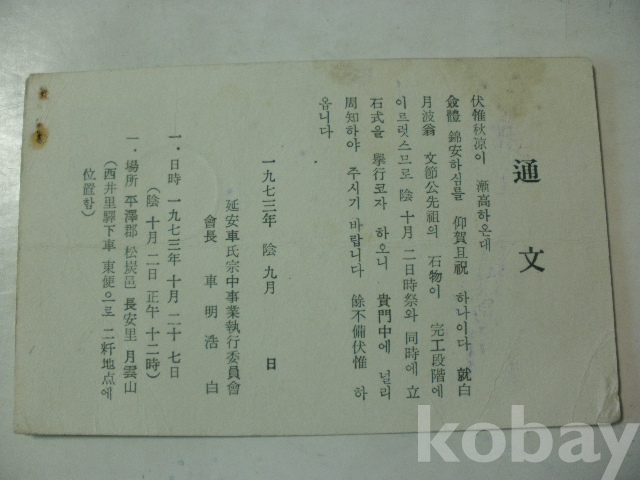 通文
伏惟秋凉이 漸高하온대
僉體 錦安하심를 仰賀且祝 하나이다 就白
月波翁 文節公先祖의 石物이 完工段階에
이르럿스므로 陰 十月 二日時祭와 同時에 立
石式을 擧行코자 하오니 貴門中에 널리
周知하야 주시기 바랍니다 餘不備伏惟 하
옵니다
一九七三年 陰 九月 日
延安車氏宗中事業執行委員會
會長 車明浩 白
一. 日時 一九七三年 十月 二十七日
(陰 十月 二日 正午 十二時)
一. 場所 平澤郡 松炭邑 長安里 月雲山
(西井里驛下車 東便으로 二粁地点에
位置함)
kobay